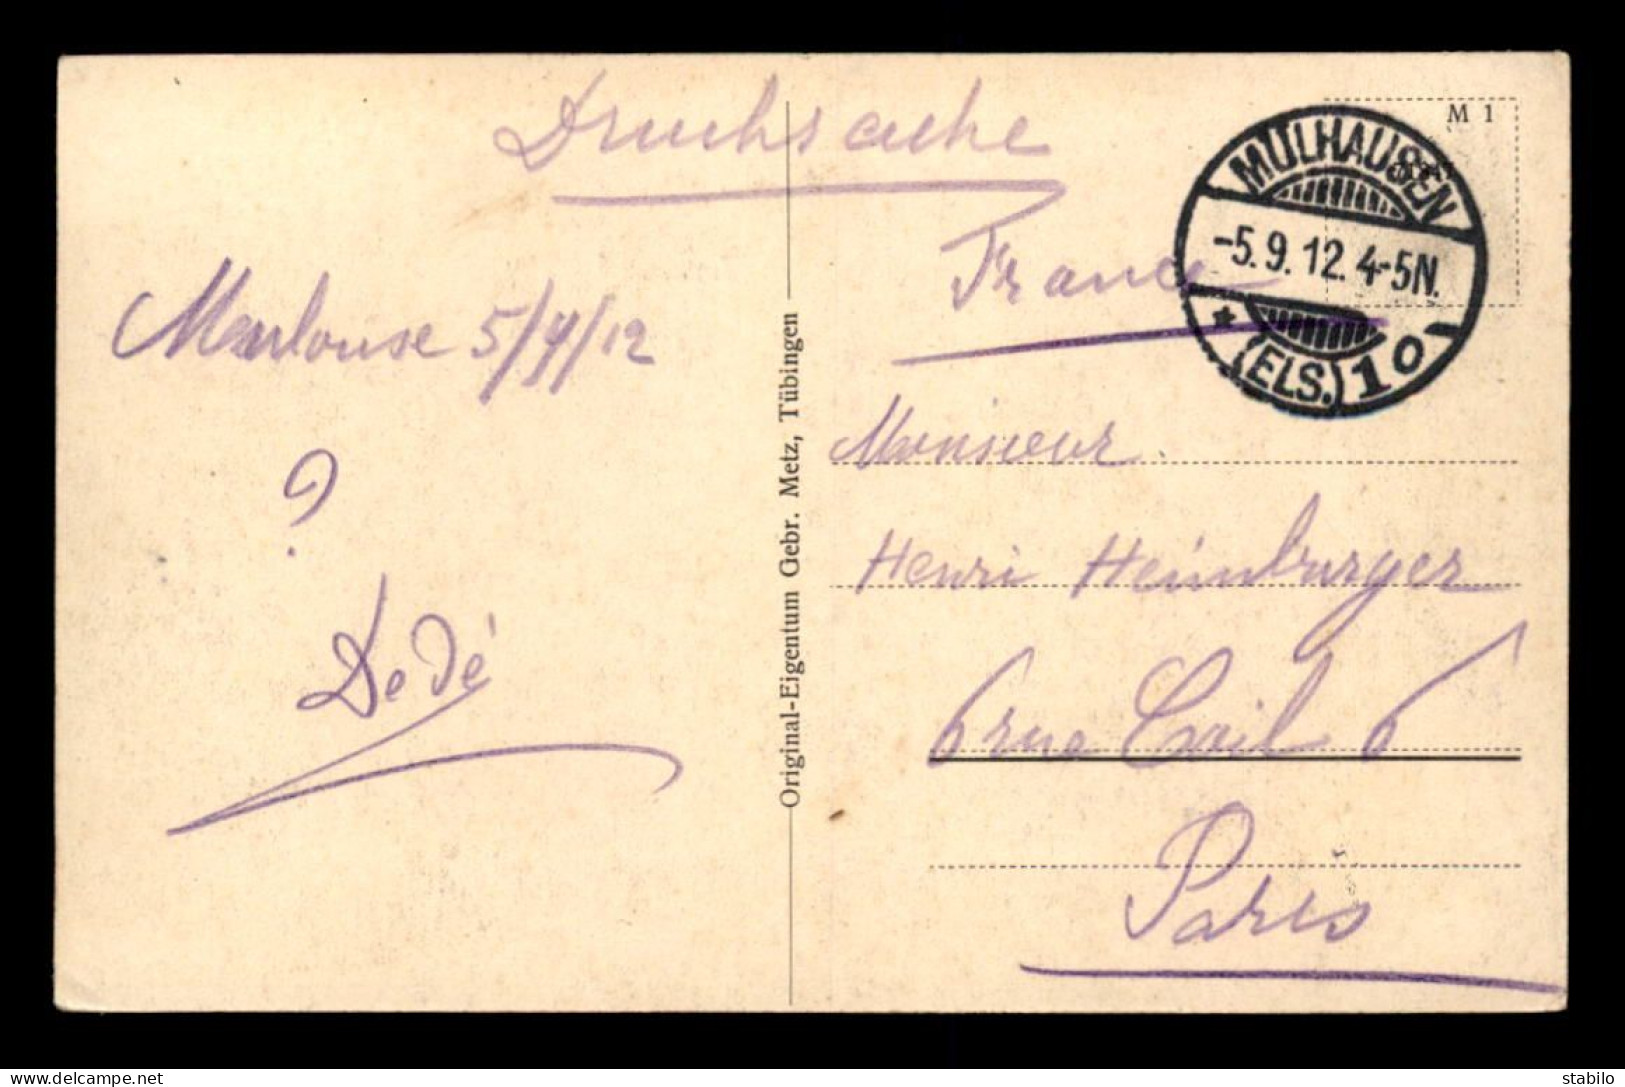 Drucksache
M 1
MÜLHAUSEN
-5.9.12.4-5N.
* (ELS.) 10
France
Mulouse 5/9/12
?
Dedé
Original-Eigentum Gebr. Metz, Tübingen
Monsieur
Henri Heimburger
6 rue Cail 6
Paris
delcampe.net
stabilo